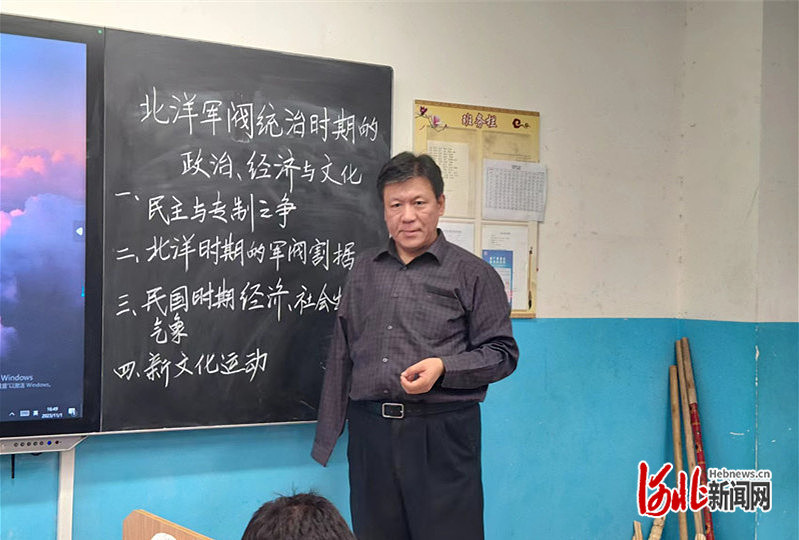 北洋军阀统治时期的
政治、经济与文化
一、民主与专制之争
二、北洋时期的军阀割据
三、民国时期经济、社会生
气象
四、新文化运动
班务栏
Windows
16:49
2023/11/1
英
Hebnews.cn
河北新闻网